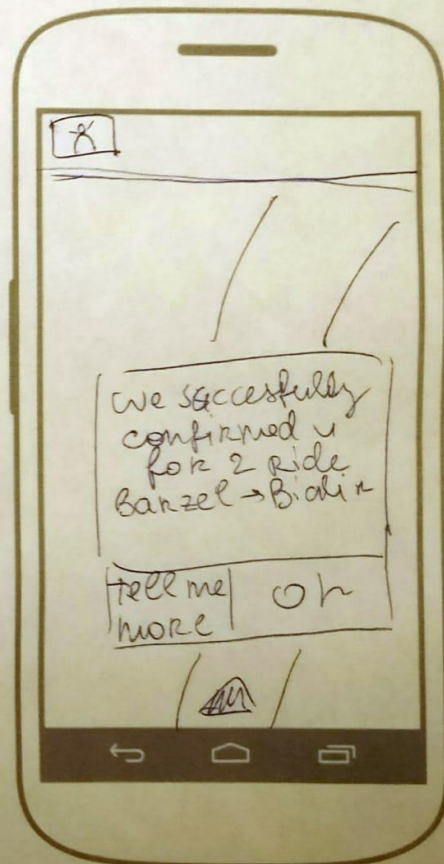 we succesfully
confirmed u
for 2 ride
Barzel → Bialik
tell me
more
Ok